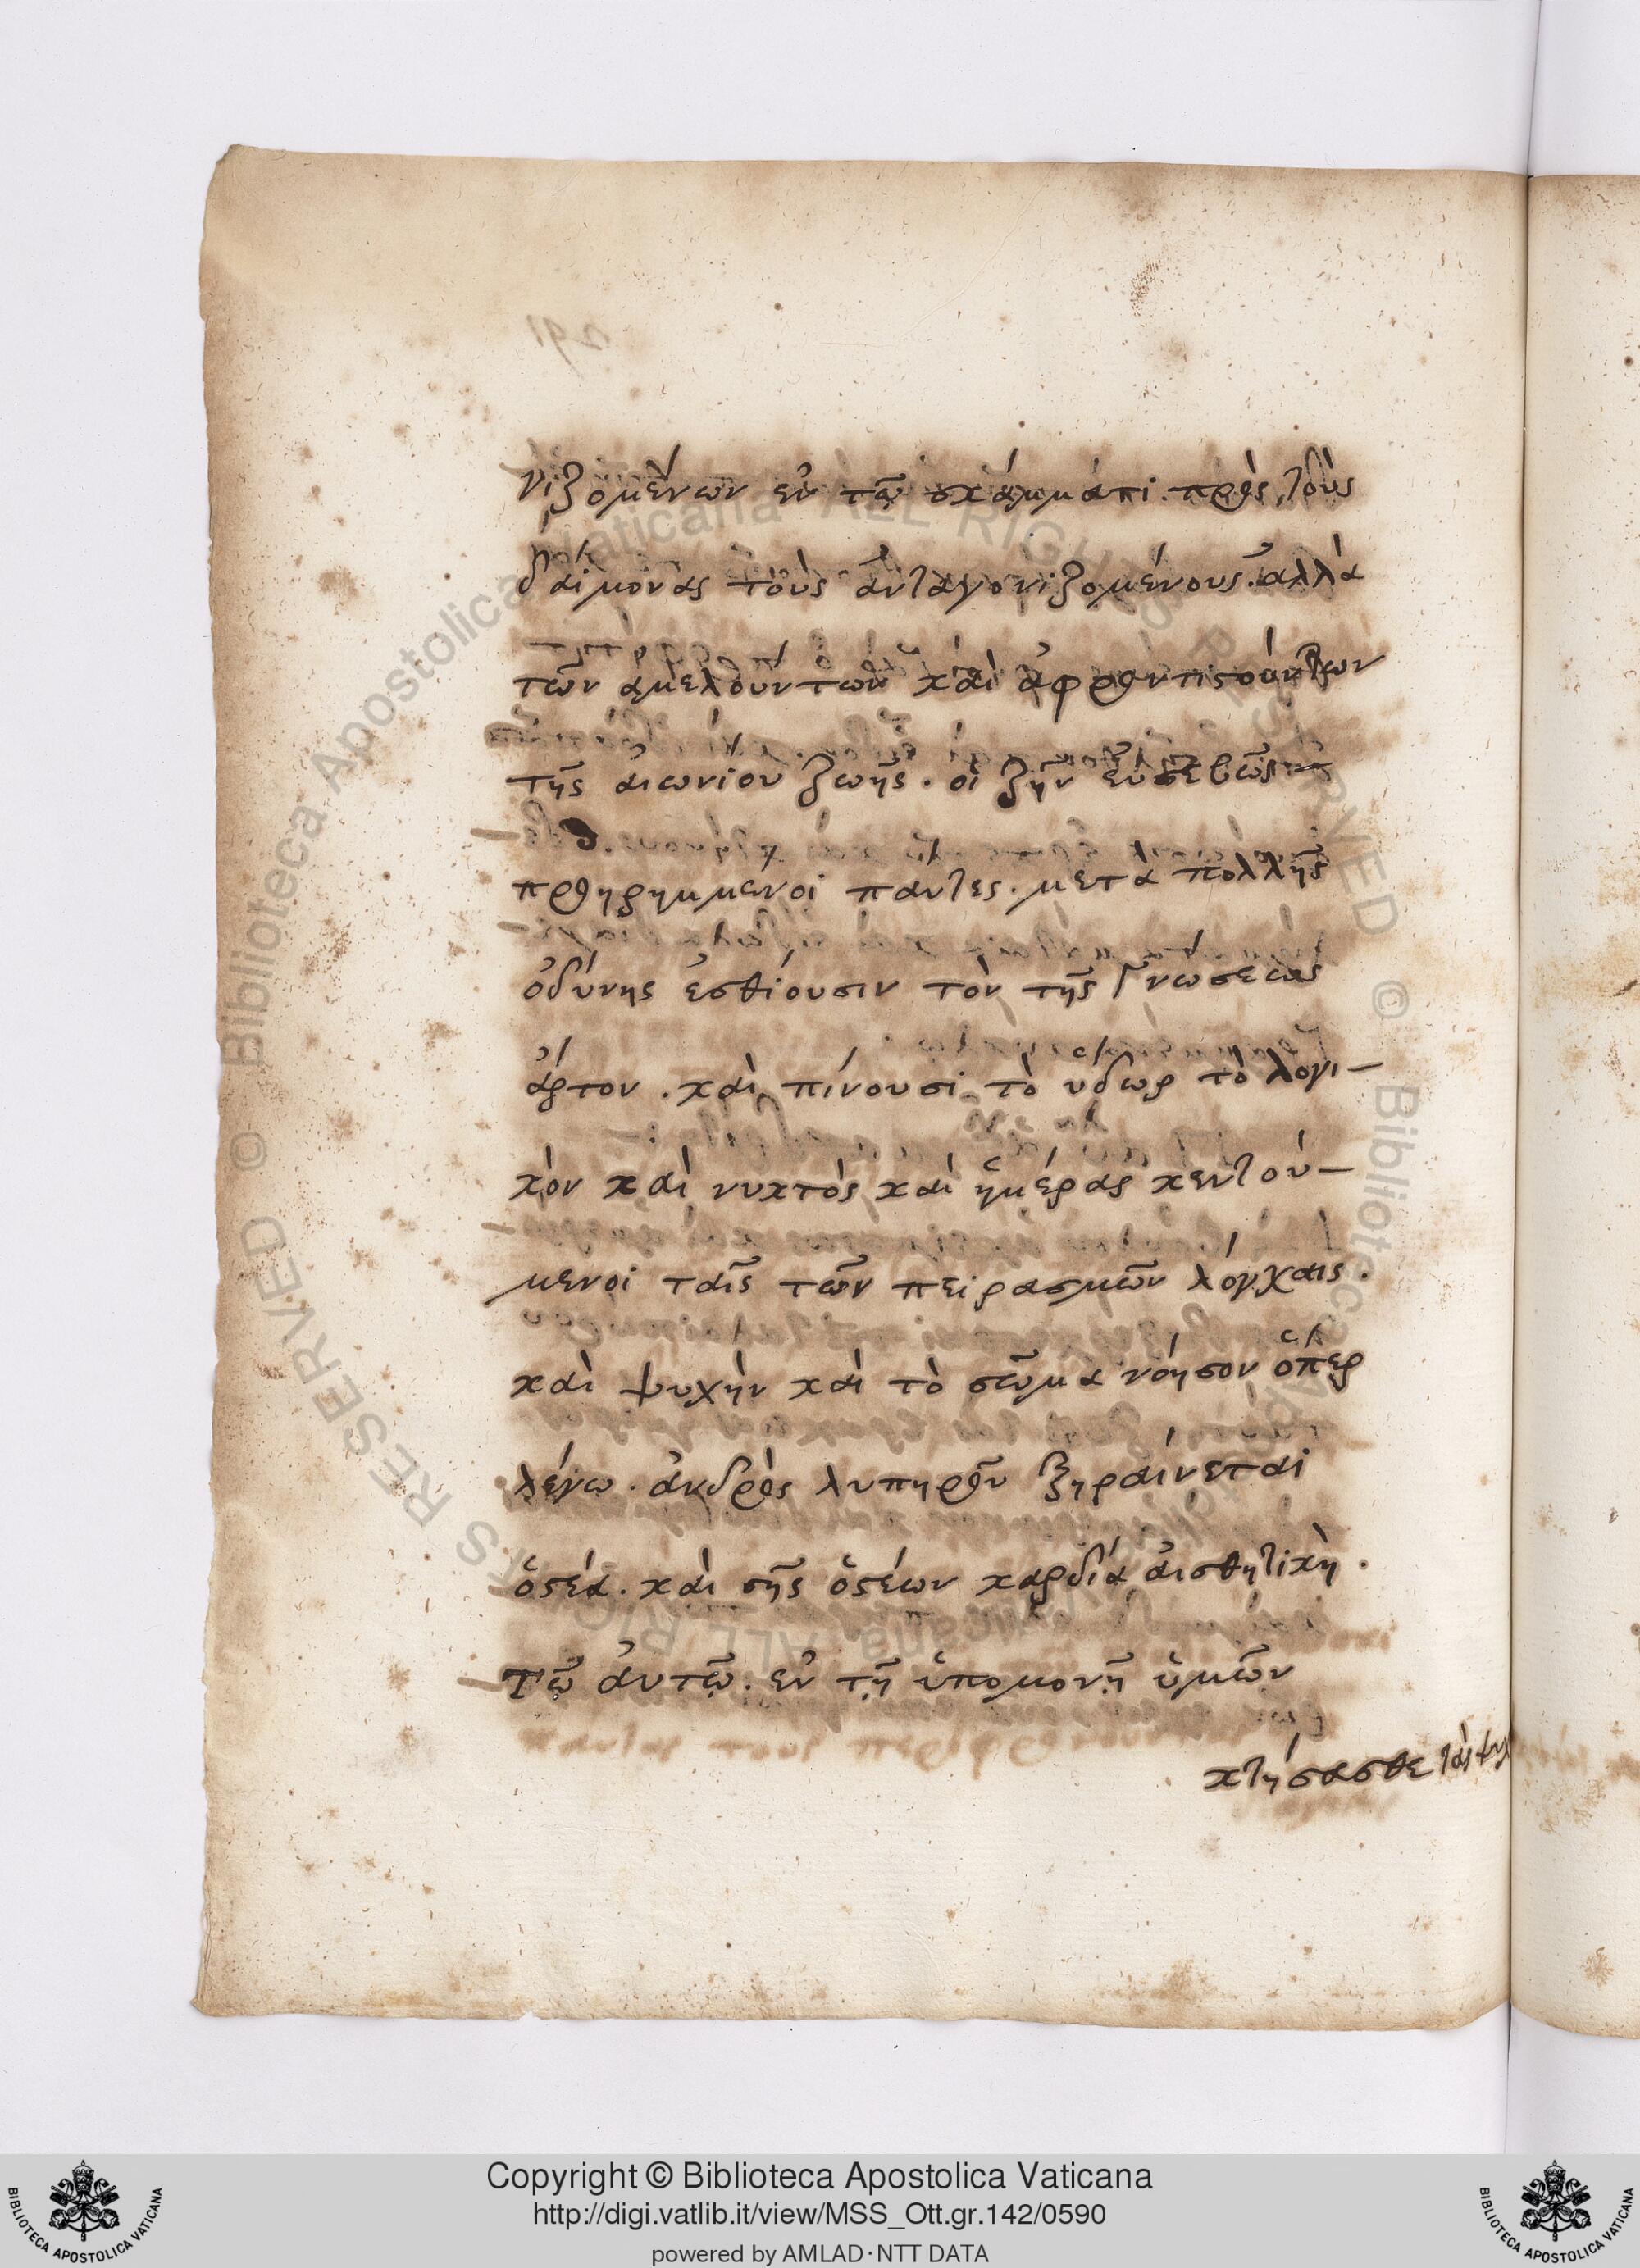 νιζομένων ἐν τῶ σκάμματι. πρὸς τοὺς
δαίμονας τοὺς ἀνταγονιζομένους. ἀλλὰ
τῶν ἀμελούντων καὶ ἀφροντιστούντων
τῆς αἰωνίου ζωῆς. οἱ ζῆν εὐσεβῶς
προηρημμένοι πάντες. μετὰ πολλῆς
ὀδύνης ἐσθίουσιν τὸν τῆς γνώσεως
ἄρτον. καὶ πίνουσι τὸ ὕδωρ τὸ λογι-
κὸν καὶ νυκτὸς καὶ ἡμέρας κεντού-
μενοι ταῖς τῶν πειρασμῶν λόγχαις.
καὶ ψυχὴν καὶ τὸ σῶμα νόησον ὅπερ
λέγω. ἀνδρὸς λυπηροῦ ξηραίνεται
ὀστέα. καὶ σῆς ὀστέων καρδία αἰσθητικὴ.
Τῶ αὐτῶ. ἐν τῆ ὑπομονῆ ὑμῶν
κτήσασθε τὰς ψυχ
Copyright © Biblioteca Apostolica Vaticana
http://digi.vatlib.it/view/MSS_Ott.gr.142/0590
powered by AMLAD·NTT DATA
BIBLIOTECA APOSTOLICA VATICANA
BIBLIOTECA APOSTOLICA VATICANA